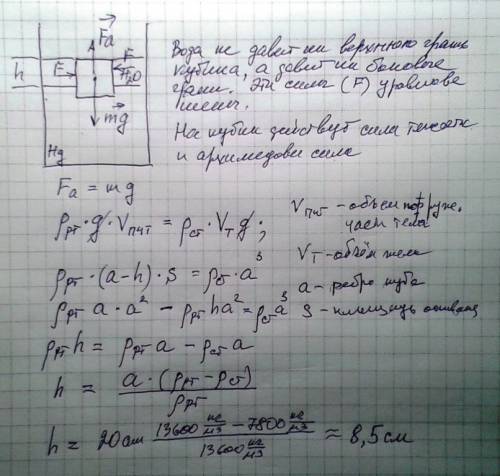 Fa
A
F
F
h
H₂O
mg
Hg
Вода не давит на верхнюю грань
кубика, а давит на боковые
грани. Эти силы (F) уравнове
шены.
На кубик действуют сила тяжести
и архимедова сила
Fa = mg
ρрт · g · Vпчт = ρст · Vт g ;
Vпчт – объем погруж.
части тела
ρрт · (a-h) · S = ρст · a³
Vт – объём тела
a – ребро куба
ρрт a · a² – ρрт ha² = ρст a³
S – площадь основания
ρрт h = ρрт a – ρст a
h = a · (ρрт – ρст) / ρрт
h = 20см (13600 кг/м3 – 7800 кг/м3) / 13600 кг/м3 ≈ 8,5см